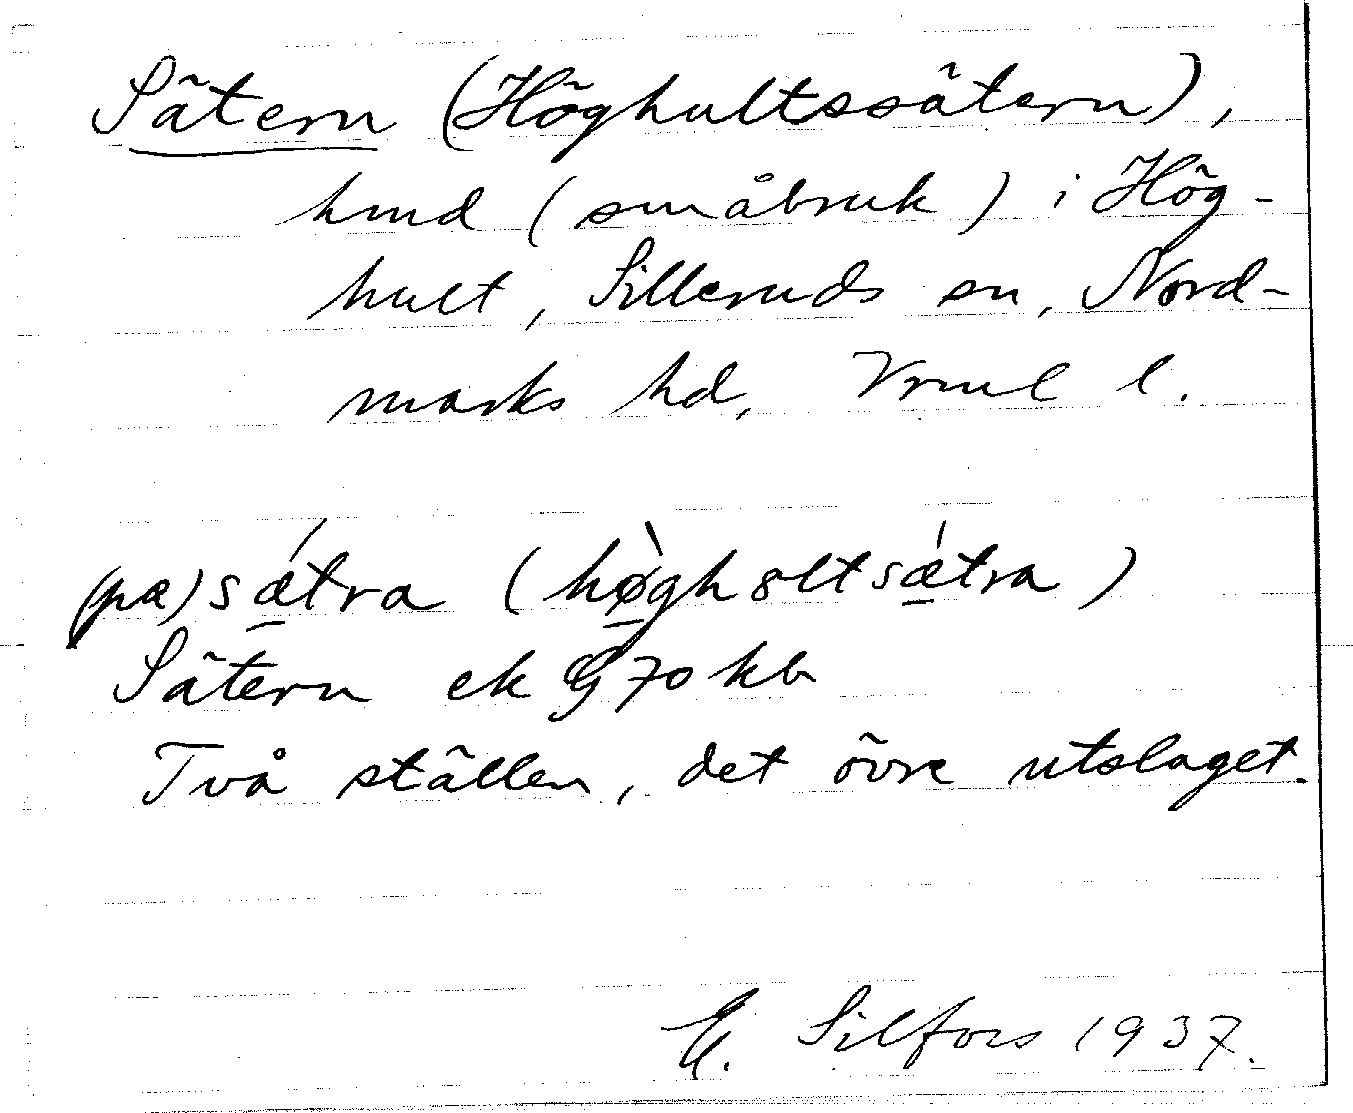 Sätern (Höghultssätern),
hmd (småbruk) i Hög-
hult, Silleruds sn, Nord-
marks hd, Vrml l.
(pa) sǽtra (hø̀gholtsǽtra)
Sätern ek G 70 kb
Två ställen, det övre utslaget.
E. Silfors 1937.